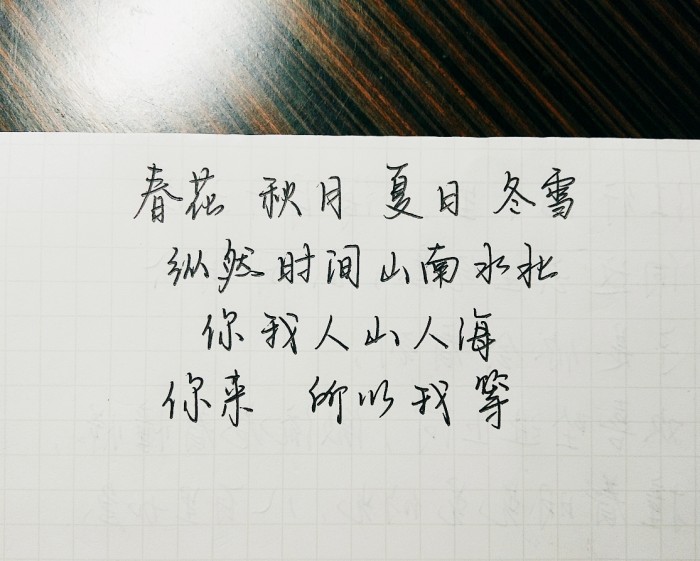 春花 秋月 夏日 冬雪
纵然时间山南水北
你我人山人海
你来 所以我等